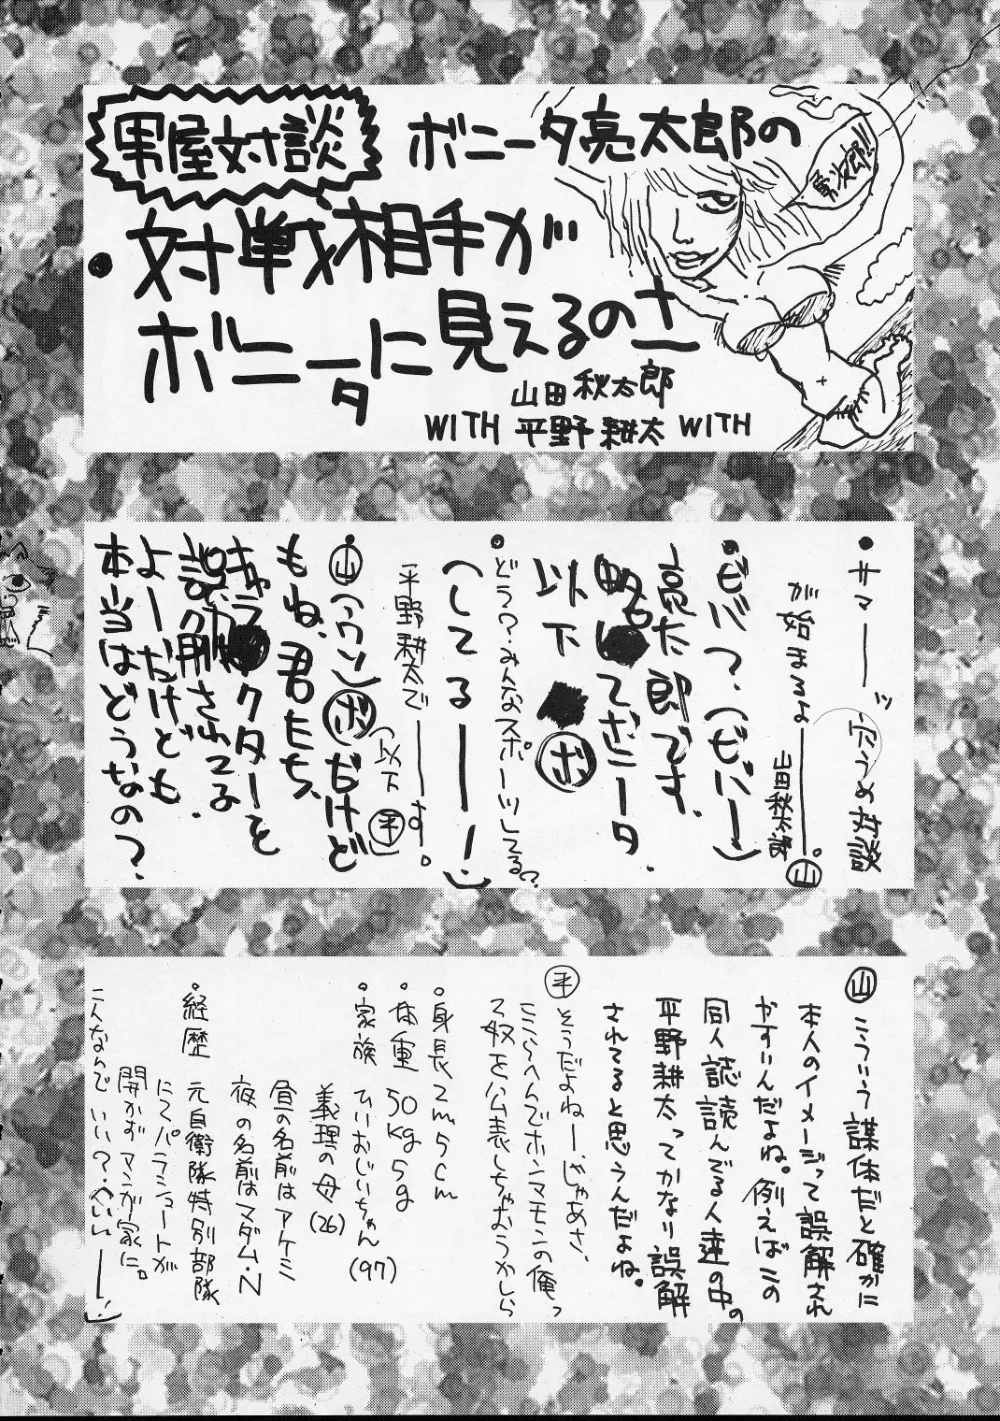 男屋対談
ボニータ亮太郎の
男次郎!!
・対戦相手が
ボニータに見えるのさー
山田秋太郎
WITH 平野耕太 WITH
・サマーーッ 穴うめ対談
が始まるよーー。㊤
山田秋太郎
・ビバ?、(ビバー)
亮太郎です。
略してボニータ。
以下 ㋭
・どう?みんなスポーツしてる?
(してるーー!)
平野耕太でーーす。
(以下 ㊥)
(ウン)
もね、君たち、
だけど
キャラクターを
誤解されてる
よーだけども
本当はどうなの?
こういう謀体だと確かに
本人のイメージって誤解され
やすいんだよね。例えばこの
同人誌読んでる人達の中の
平野耕太ってかなり誤解
されてると思うんだよね。
そうだよねー、じゃあさ、
ここらへんでホンマモンの俺っ
て奴を公表しちゃおうかしら
・身長 2m5cm
・体重 50kg5g
・家族 ひいおじいちゃん(97)
義理の母(26)
昼の名前はアケミ
夜の名前はマダム・N
・経歴 元自衛隊特別部隊
にてパラシュートが
開かずマンガ家に。
こんなんでいい?